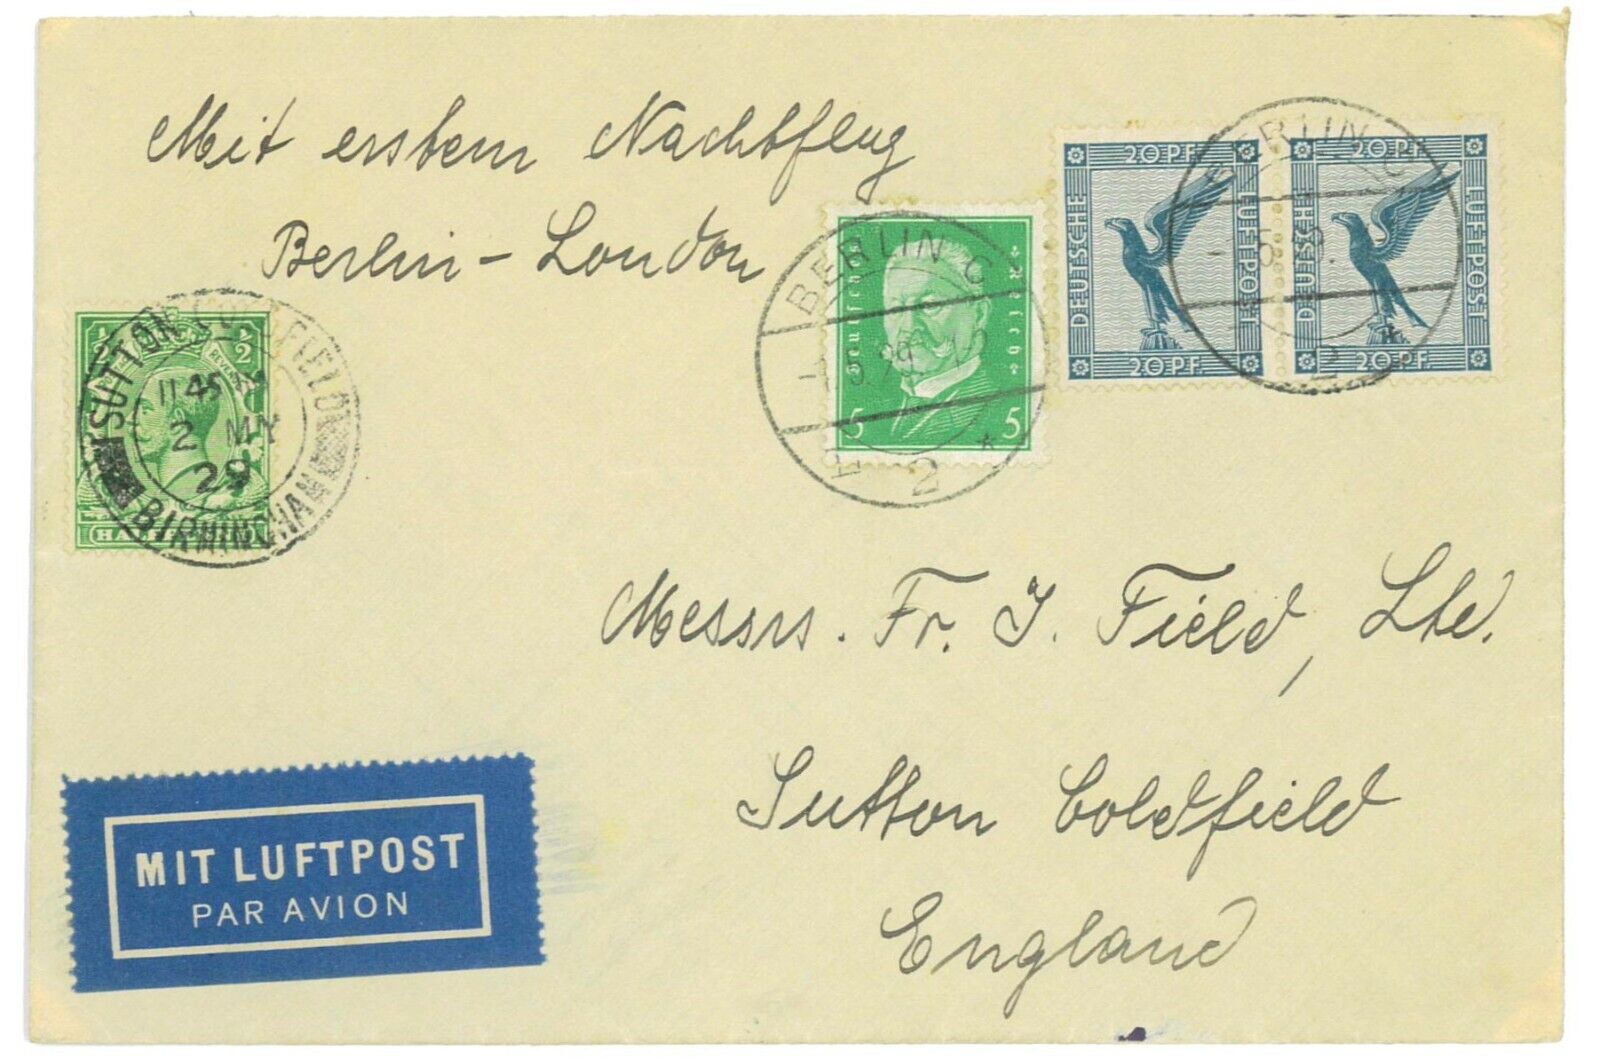 Mit erstem Nachtflug
Berlin - London
20 PF
DEUTSCHE
LUFTPOST
20 PF
20 PF
DEUTSCHE
LUFTPOST
20 PF
BERLIN C
2
BERLIN C
1.5.29.
2
Deutsches Reich
5 5
½
SUTTON COLDFIELD
11 45 A
2 MY
29
BIRMINGHAM
Messrs. Fr. J. Field, Ltd.
Sutton Coldfield
England
MIT LUFTPOST
PAR AVION